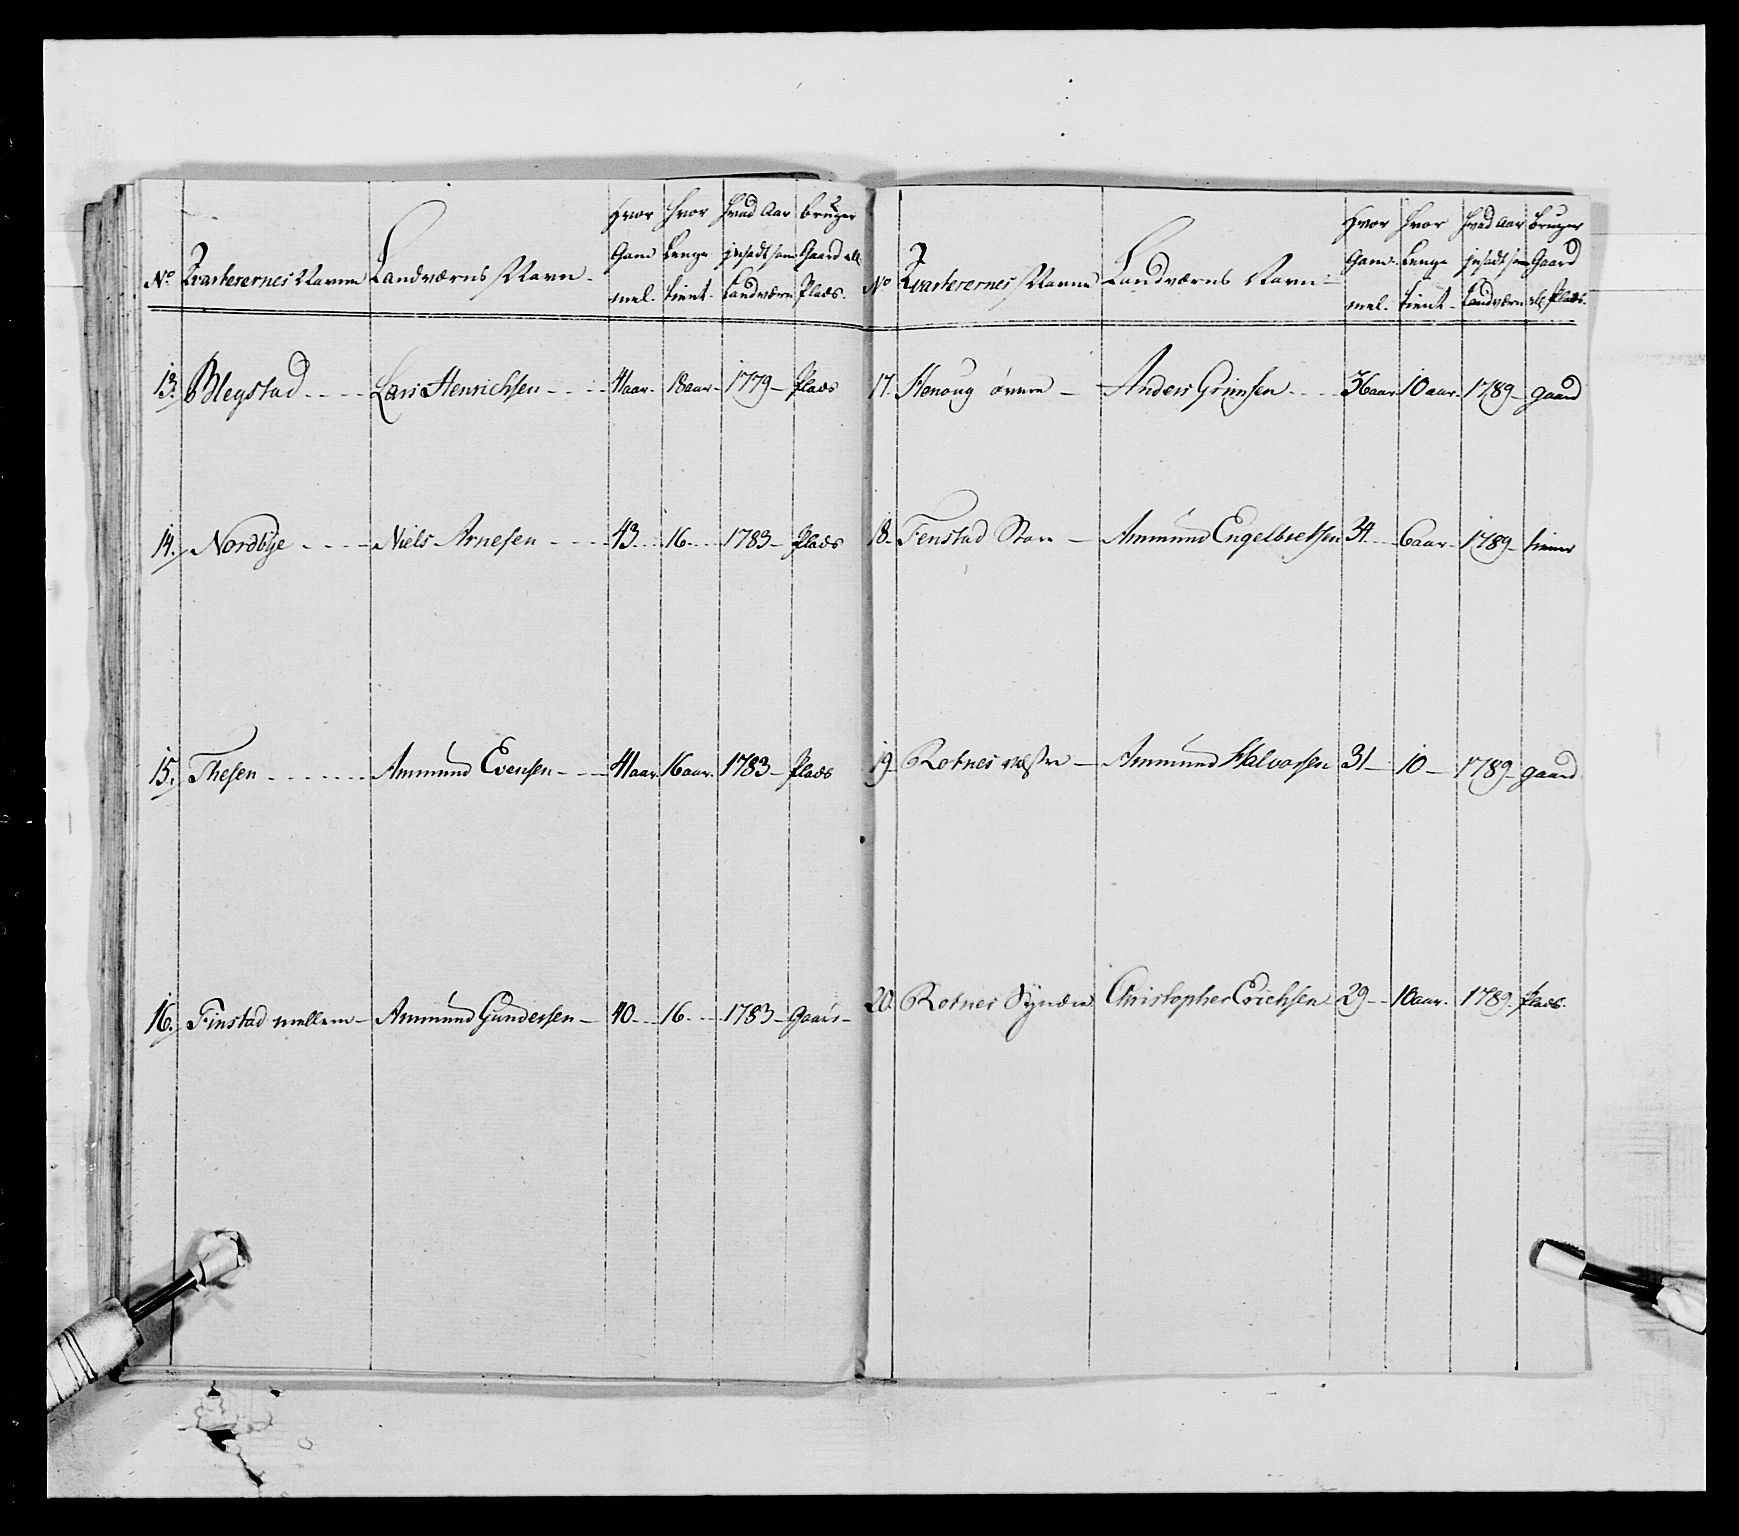 No Kvarterernes Navne Landværns Navn Hvor Gammel. Hvor Lenge tient. Hvad Aar indsadt som Landværn bruger Gaard ell. Plads.
13. Blegstad Lars Henrichsen 41 aar 18 aar 1779 Plads
14. Nordbÿe Niels Arnesen 43 16 1783 Plads
15. Thesen Ammund Evensen 41 aar 16 aar 1783 Plads
16. Finstad mellem Ammund Gundersen 40 16 1783
No Kvarterernes Navne Landværns Navn Hvor Gammel. Hvor Lenge tient Hvad Aar indsadt som Landværn bruger Gaard ell Plads.
17. øvere Anders Grimsen 36 aar 10 aar 1789 gaard
18. Fenstad Store Ammund Engelbretsen 34 6 aar 1789 tiener
19 Rotnes vestre Ammund Halvorsen 31 10 1789 gaard
20. Rotnes Sÿndre Christopher Erichsen 29 10 aar. 1789. Plads.